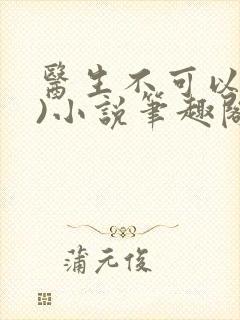 醫生不可以
)小說筆趣閣
蒲元俊